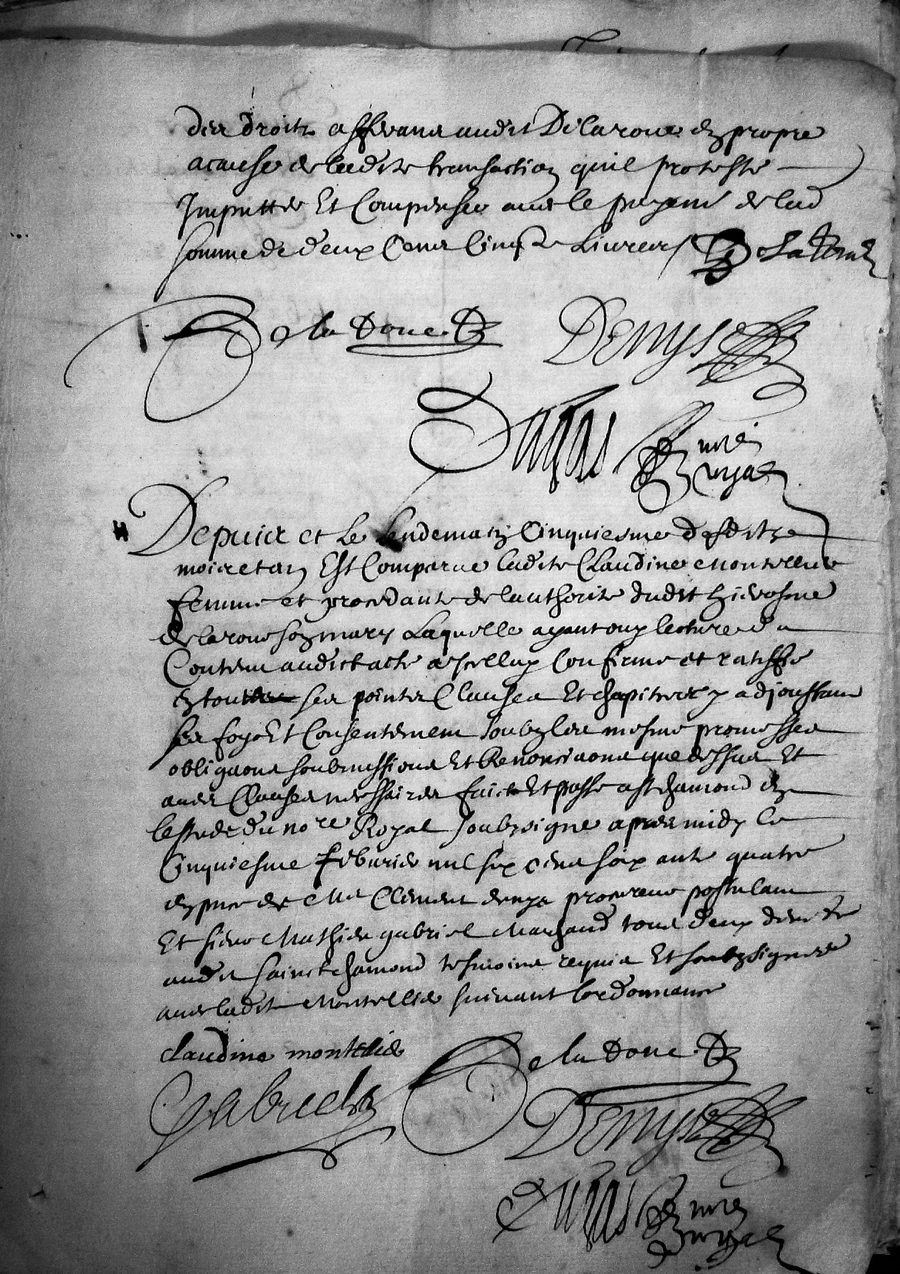 des droitz afferans audit Delaroue en propre
acause de ladite transaction quil proteste
Imputter Et Compenser avec le payemt de lad
somme de deux Cens Cinqte Livres De La Roue
De la Roue
Denys
Dugas no.re Royal
Depuis et le lendemain Cinquiesme desditz
mois et an Est Comparue ladite Claudine Montellier
femme et procedante de lauthorite dudit hierosme
delaroue son mary Laquelle ayant ouy lecture du
Contenu audict acte a Icelluy Confirmé et ratiffié
en tous ses pointz Clauses Et chapitres y adjoustant
ses foy Et Consentement soubz les mesme promesses
obligaons soubmissions Et Renonciaons que dessus Et
aues Clauses necessaires faict Et passé a St chamond en
lestude du nore Royal soubzsigné apres midy le
Cinquiesme febvrier mil six cens soixante quatre
en pnce de Me Clement denys procureur postulant
Et sieur Mathieu gabriel Marchand tous deux dem
audit Sainct chamond tesmoins requis Et soubzsignes
avec ladite Montellier suivant lordonnance
claudine montelie
De la Roue
Gabriel
Denys
Dugas no.re Royal